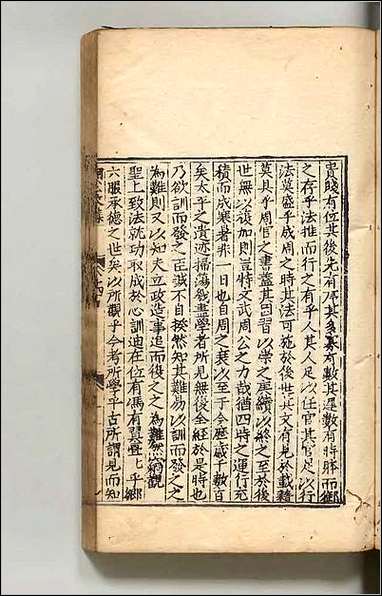 貴賤有位其後先有序其多寡有數其遲數有時制而用
之存乎法推而行之存乎人其人足以任官其官足以行
法莫盛乎成周之時其法可施於後世其文有見於載籍
莫具乎周官之書蓋其因習以崇之賡續以終之至於後
世無以復加則豈特文武周公之力哉猶四時之運行充
積而成寒暑非一日也自周之衰以至于今歷歲千數百
矣太平之遺迹掃蕩幾盡學者所見無復全經於是時也
乃欲訓而發之臣誠不自揆然知其難易以訓而發之之
為難則又以知夫立政造事追而復之之為難然竊觀
聖上致法就功取成於心訓迪在位有馮有翼亹亹乎鄉
六服承德之世矣以所觀乎今考所學乎古所謂見而知